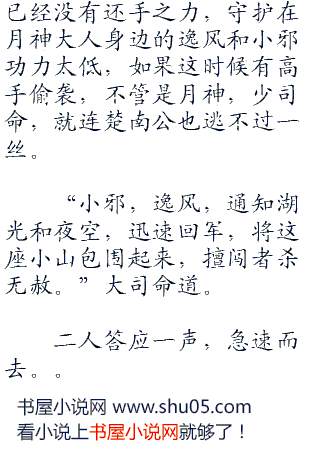 已经没有还手之力，守护在
月神大人身边的逸风和小邪
功力太低，如果这时候有高
手偷袭，不管是月神，少司
命，就连楚南公也逃不过一
丝。
“小邪，逸风，通知湖
光和夜空，迅速回军，将这
座小山包围起来，擅闯者杀
无赦。”大司命道。
二人答应一声，急速而
去。。
书屋小说网 www.shu05.com
看小说上书屋小说网就够了！